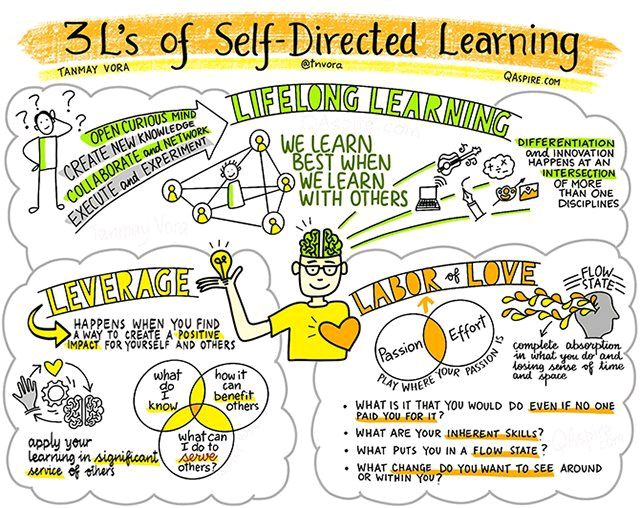 3 L's of Self-Directed Learning
TANMAY VORA
@tnvora
QASPIRE.COM
LIFELONG LEARNING
OPEN CURIOUS MIND
CREATE NEW KNOWLEDGE
COLLABORATE and NETWORK
EXECUTE and EXPERIMENT
WE LEARN
BEST WHEN
WE LEARN
WITH OTHERS
DIFFERENTIATION
and INNOVATION
HAPPENS AT AN
INTERSECTION
OF MORE
THAN ONE
DISCIPLINES
QAspire.com
Tanmay Vora
LEVERAGE
HAPPENS WHEN YOU FIND
A WAY TO CREATE A POSITIVE
IMPACT FOR YOURSELF AND OTHERS
what
do I
know
how it
can
benefit
others
what can
I do to
serve
others?
apply your
learning in significant
service of others
LABOR of LOVE
Passion
Effort
PLAY WHERE YOUR PASSION IS
FLOW
STATE
complete absorption
in what you do and
losing sense of time
and space
• WHAT IS IT THAT YOU WOULD DO EVEN IF NO ONE
PAID YOU FOR IT?
• WHAT ARE YOUR INHERENT SKILLS?
• WHAT PUTS YOU IN A FLOW STATE?
• WHAT CHANGE DO YOU WANT TO SEE AROUND
OR WITHIN YOU?